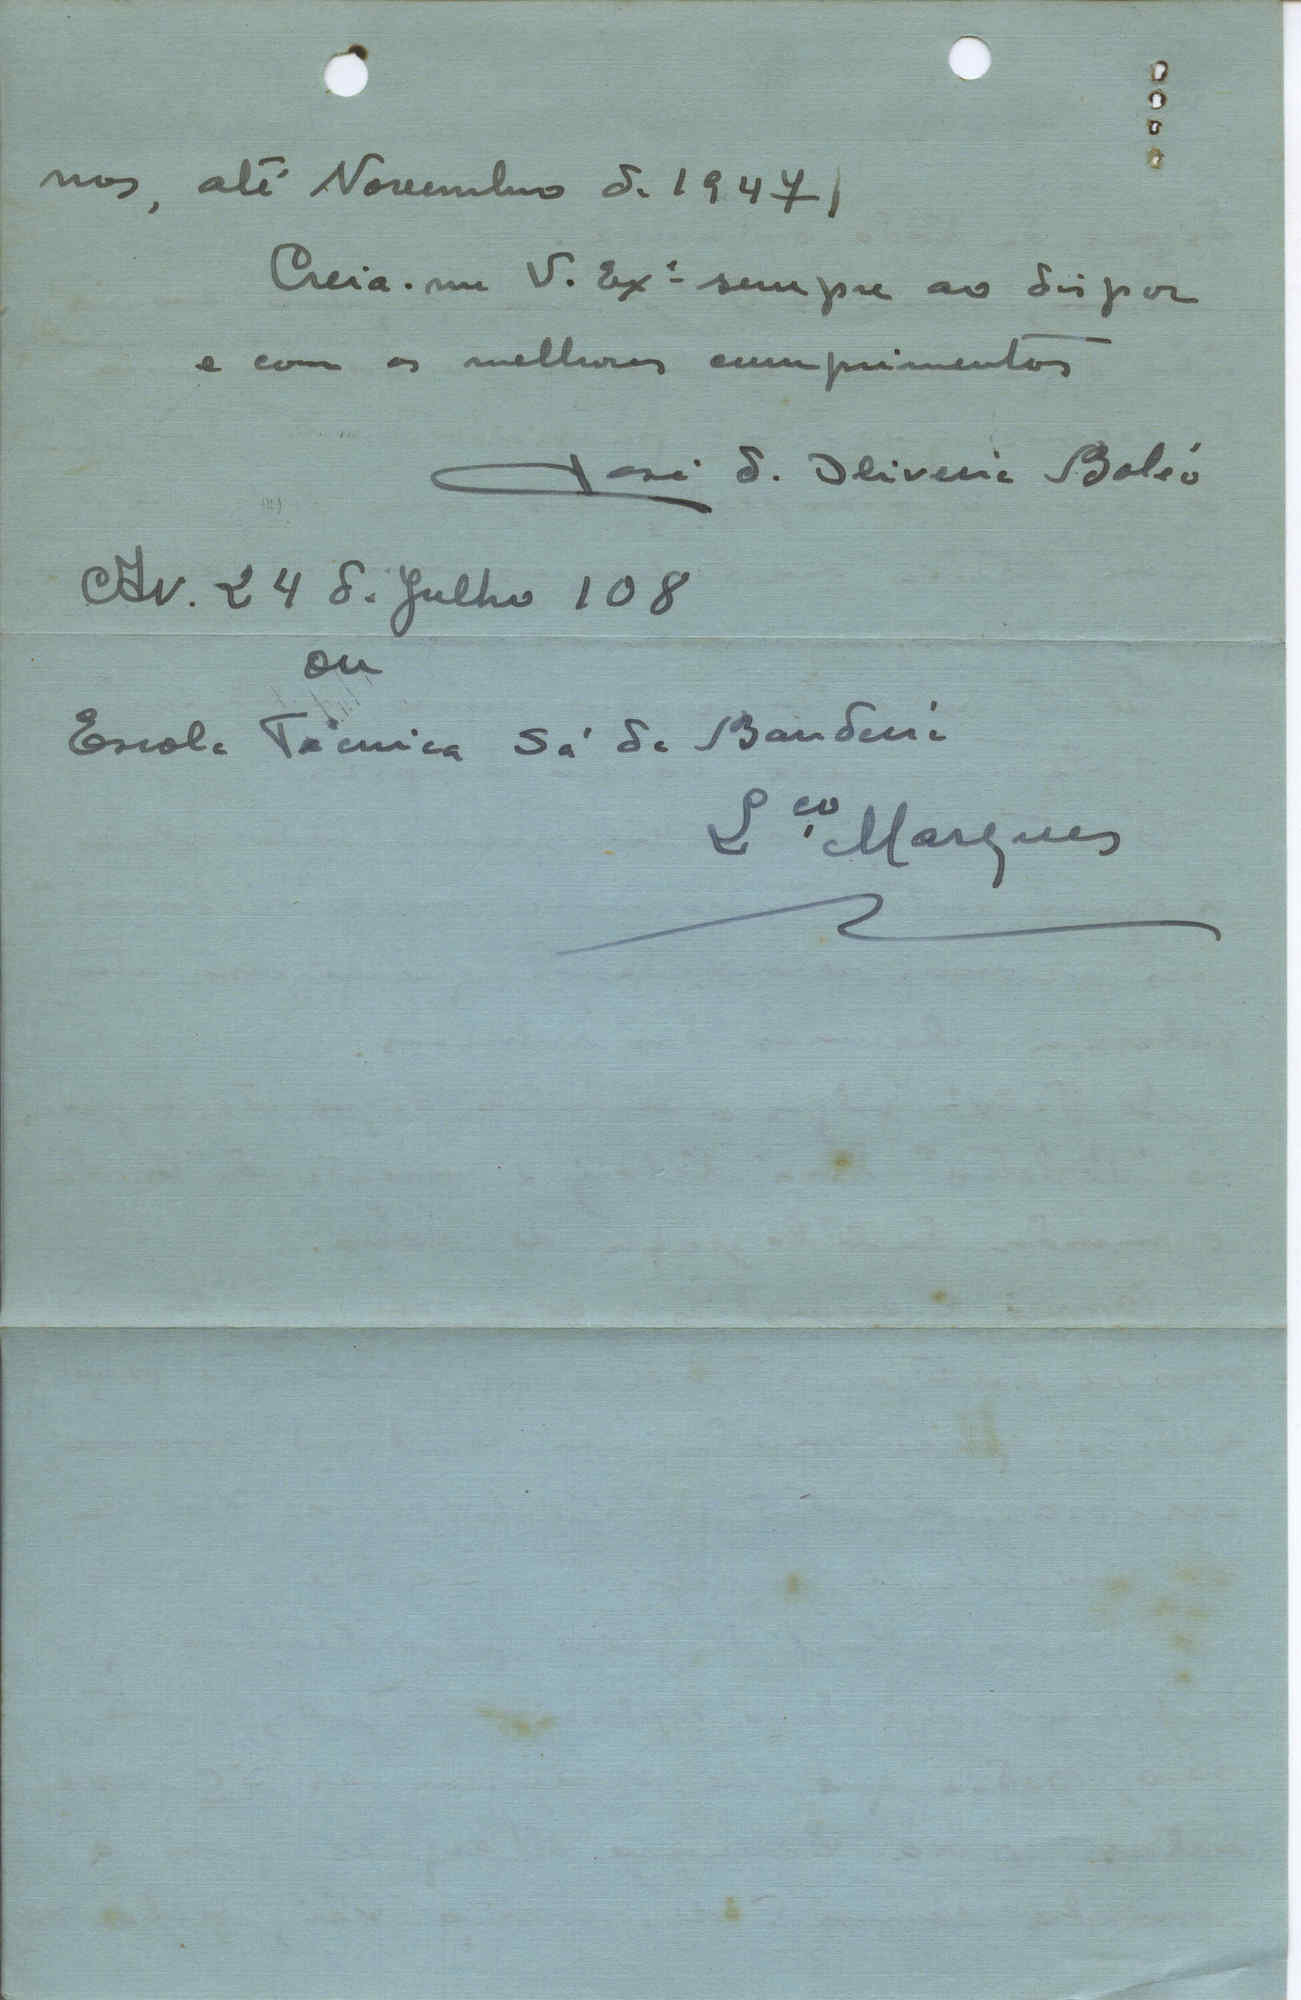 nos, até Novembro de 1947/
Creia-me V. Exª sempre ao dispor
e com os melhores cumprimentos
José d. Oliveira Boléo
Av. 24 de Julho 108
ou
Escola Técnica Sá da Bandeira
L.ço Marques